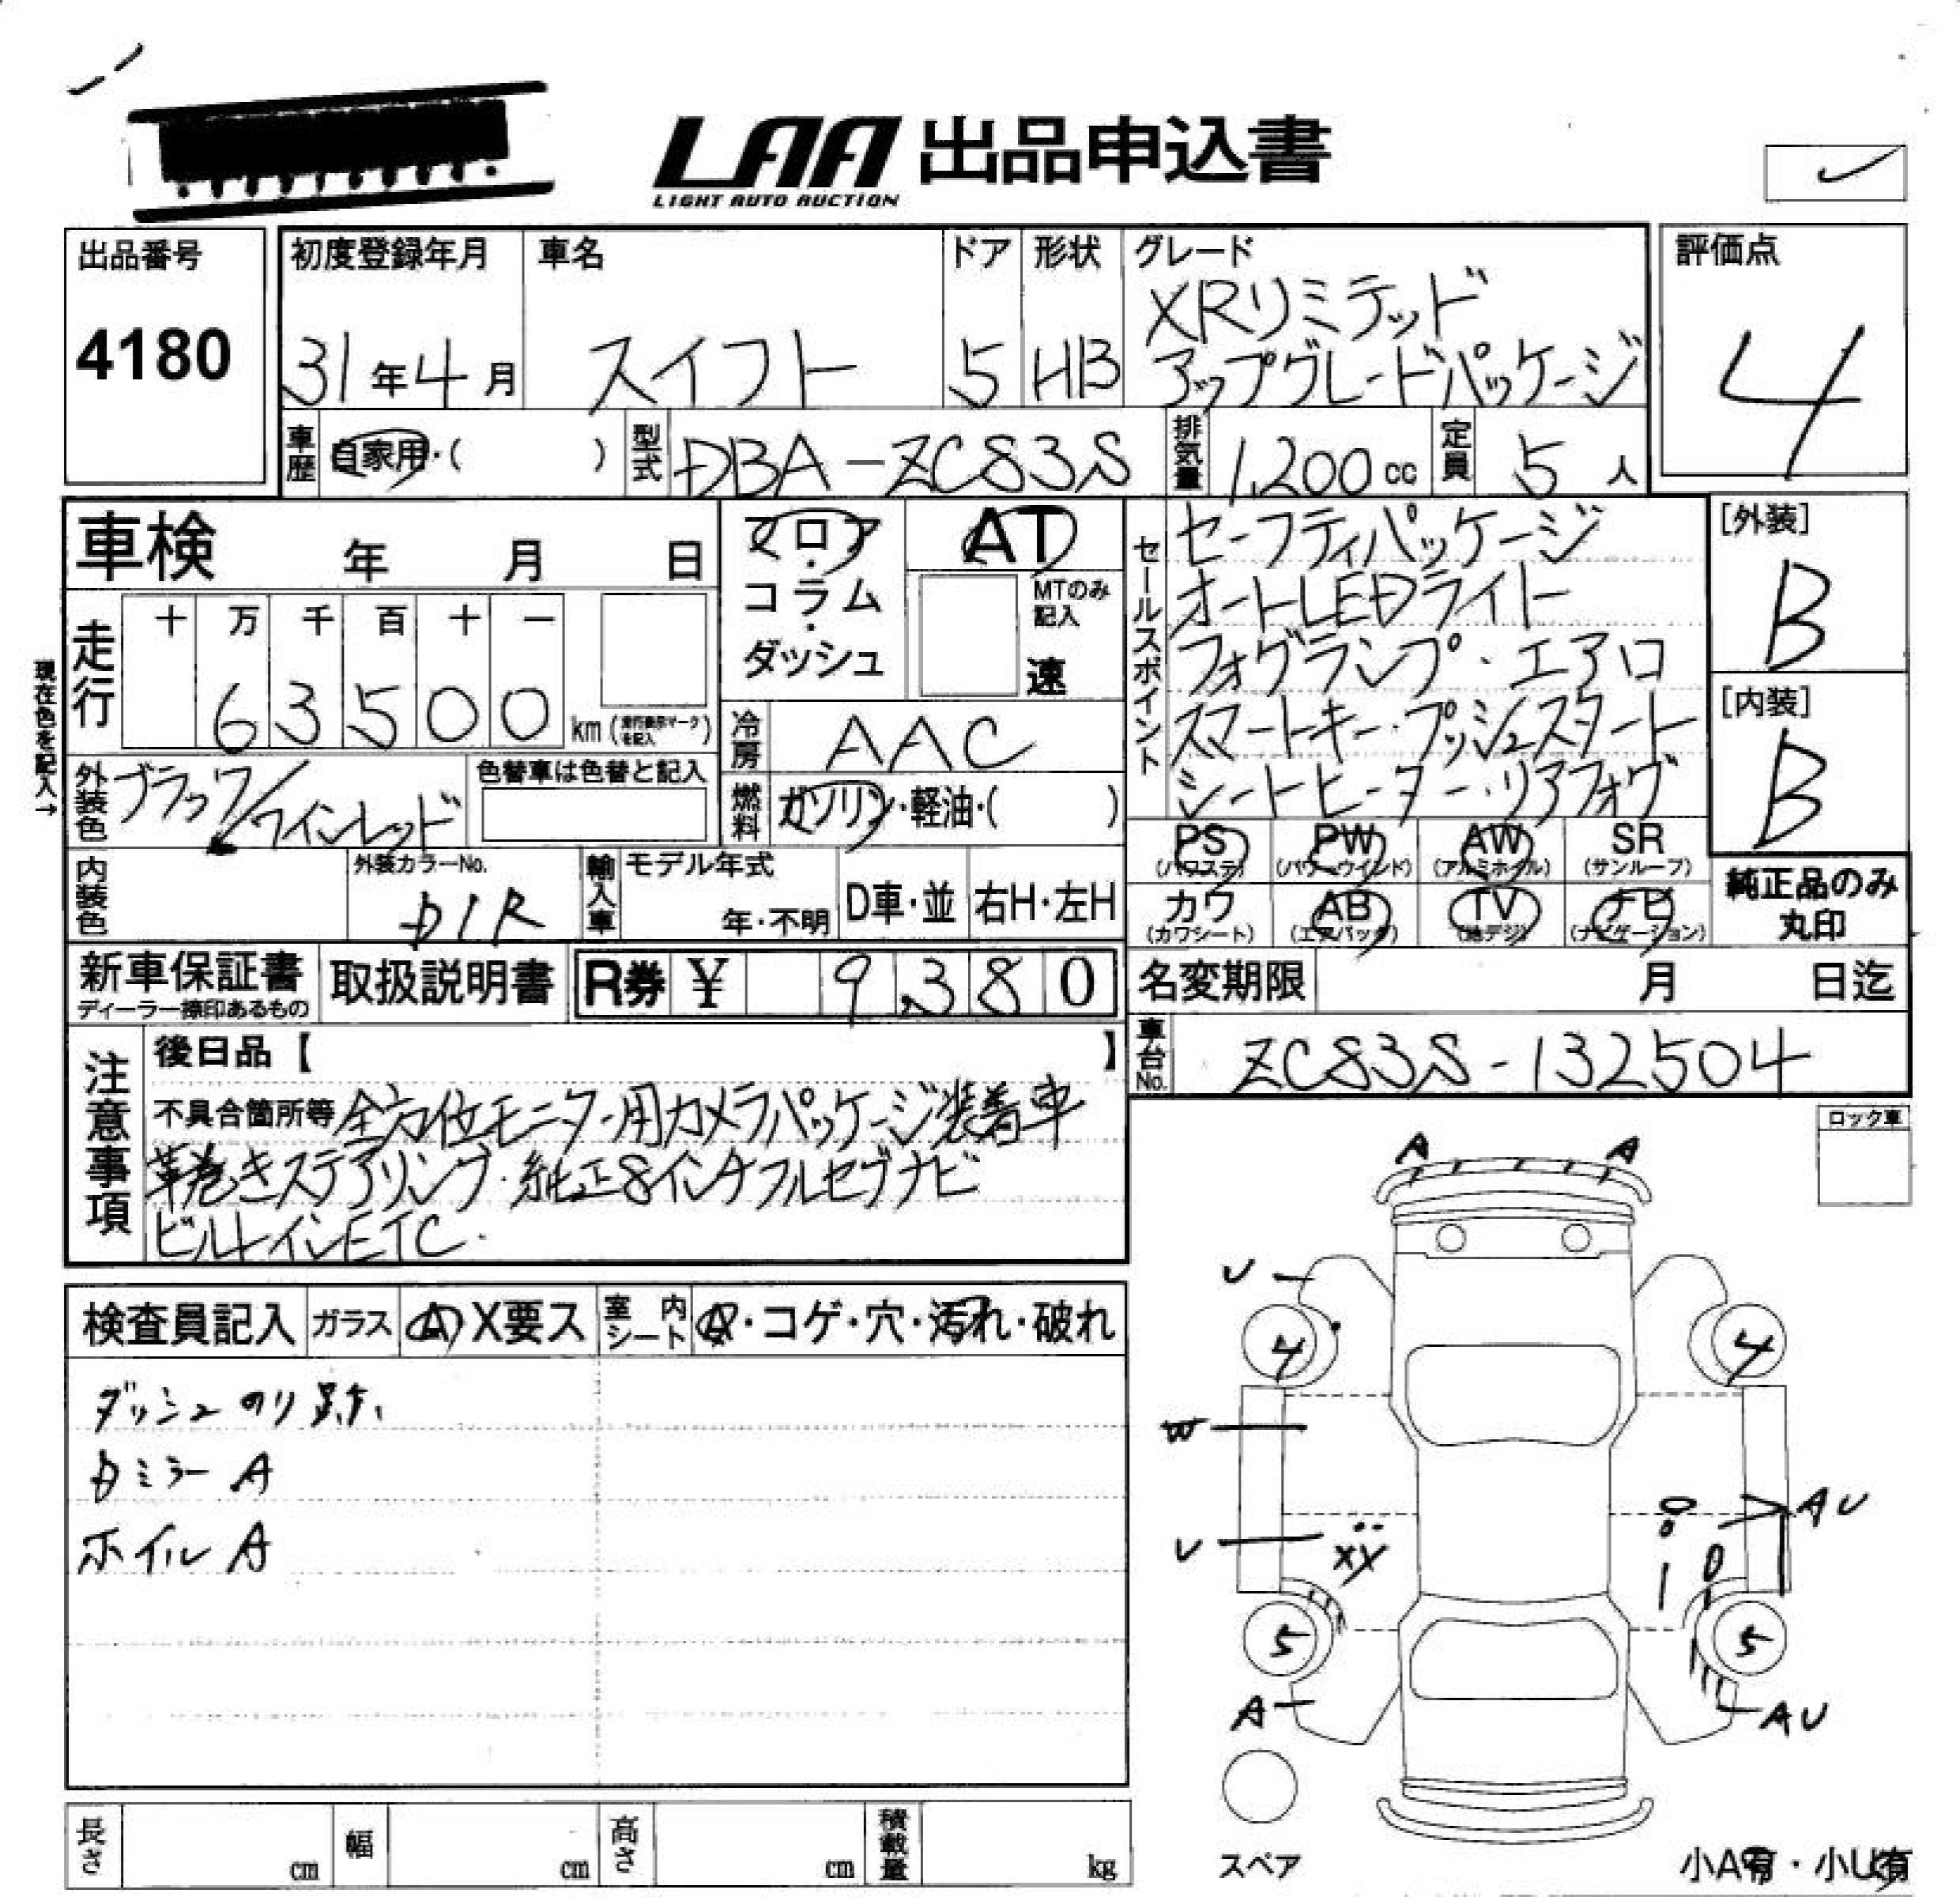 LAA 出品申込書
LIGHT AUTO AUCTION
出品番号
4180
初度登録年月
31年4月
車名
スイフト
ドア
5
形状
HB
グレード
XRリミテッド
アップグレードパッケージ
評価点
4
車歴
自家用・( )
型式
DBA-ZC83S
排気量
1,200cc
定員
5人
車検 年 月 日
フロア
・
コラム
・
ダッシュ
AT
MTのみ
記入
速
セールスポイント
セーフティパッケージ
オートLEDライト
フォグランプ・エアロ
スマートキー・プッシュスタート
シートヒーター・リアフォグ
[外装]
B
[内装]
B
現在色を記入→
走行
十 万 千 百 十 一
6 3 5 0 0
km (走行表示マークを記入)
冷房
AAC
外装色
ブラック/ワインレッド
色替車は色替と記入
燃料
ガソリン・軽油・( )
内装色
外装カラーNo.
D1R
輸入車
モデル年式
年・不明
D車・並
右H・左H
PS
(パワステ)
PW
(パワーウインド)
AW
(アルミホイル)
SR
(サンルーフ)
カワ
(カワシート)
AB
(エアバック)
TV
(地デジ)
ナビ
(ナビゲーション)
純正品のみ
丸印
新車保証書
ディーラー捺印あるもの
取扱説明書
R券 ¥ 9,380
名変期限 月 日迄
車台No.
ZC83S-132504
注意事項
後日品【 】
不具合箇所等 全方位モニター用カメラパッケージ装着車
革巻きステアリング・純正8インチフルセグナビ
ビルトインETC.
検査員記入
ガラス
A X要ス
室内シート
・コゲ・穴・汚れ・破れ
ダッシュ のり跡
Dミラー A
ホイル A
ロック車
A A
U
4 4
W
U XX
AU
5 5
A
AU
スペア
小A有・小U有
長さ cm
幅 cm
高さ cm
積載量 kg